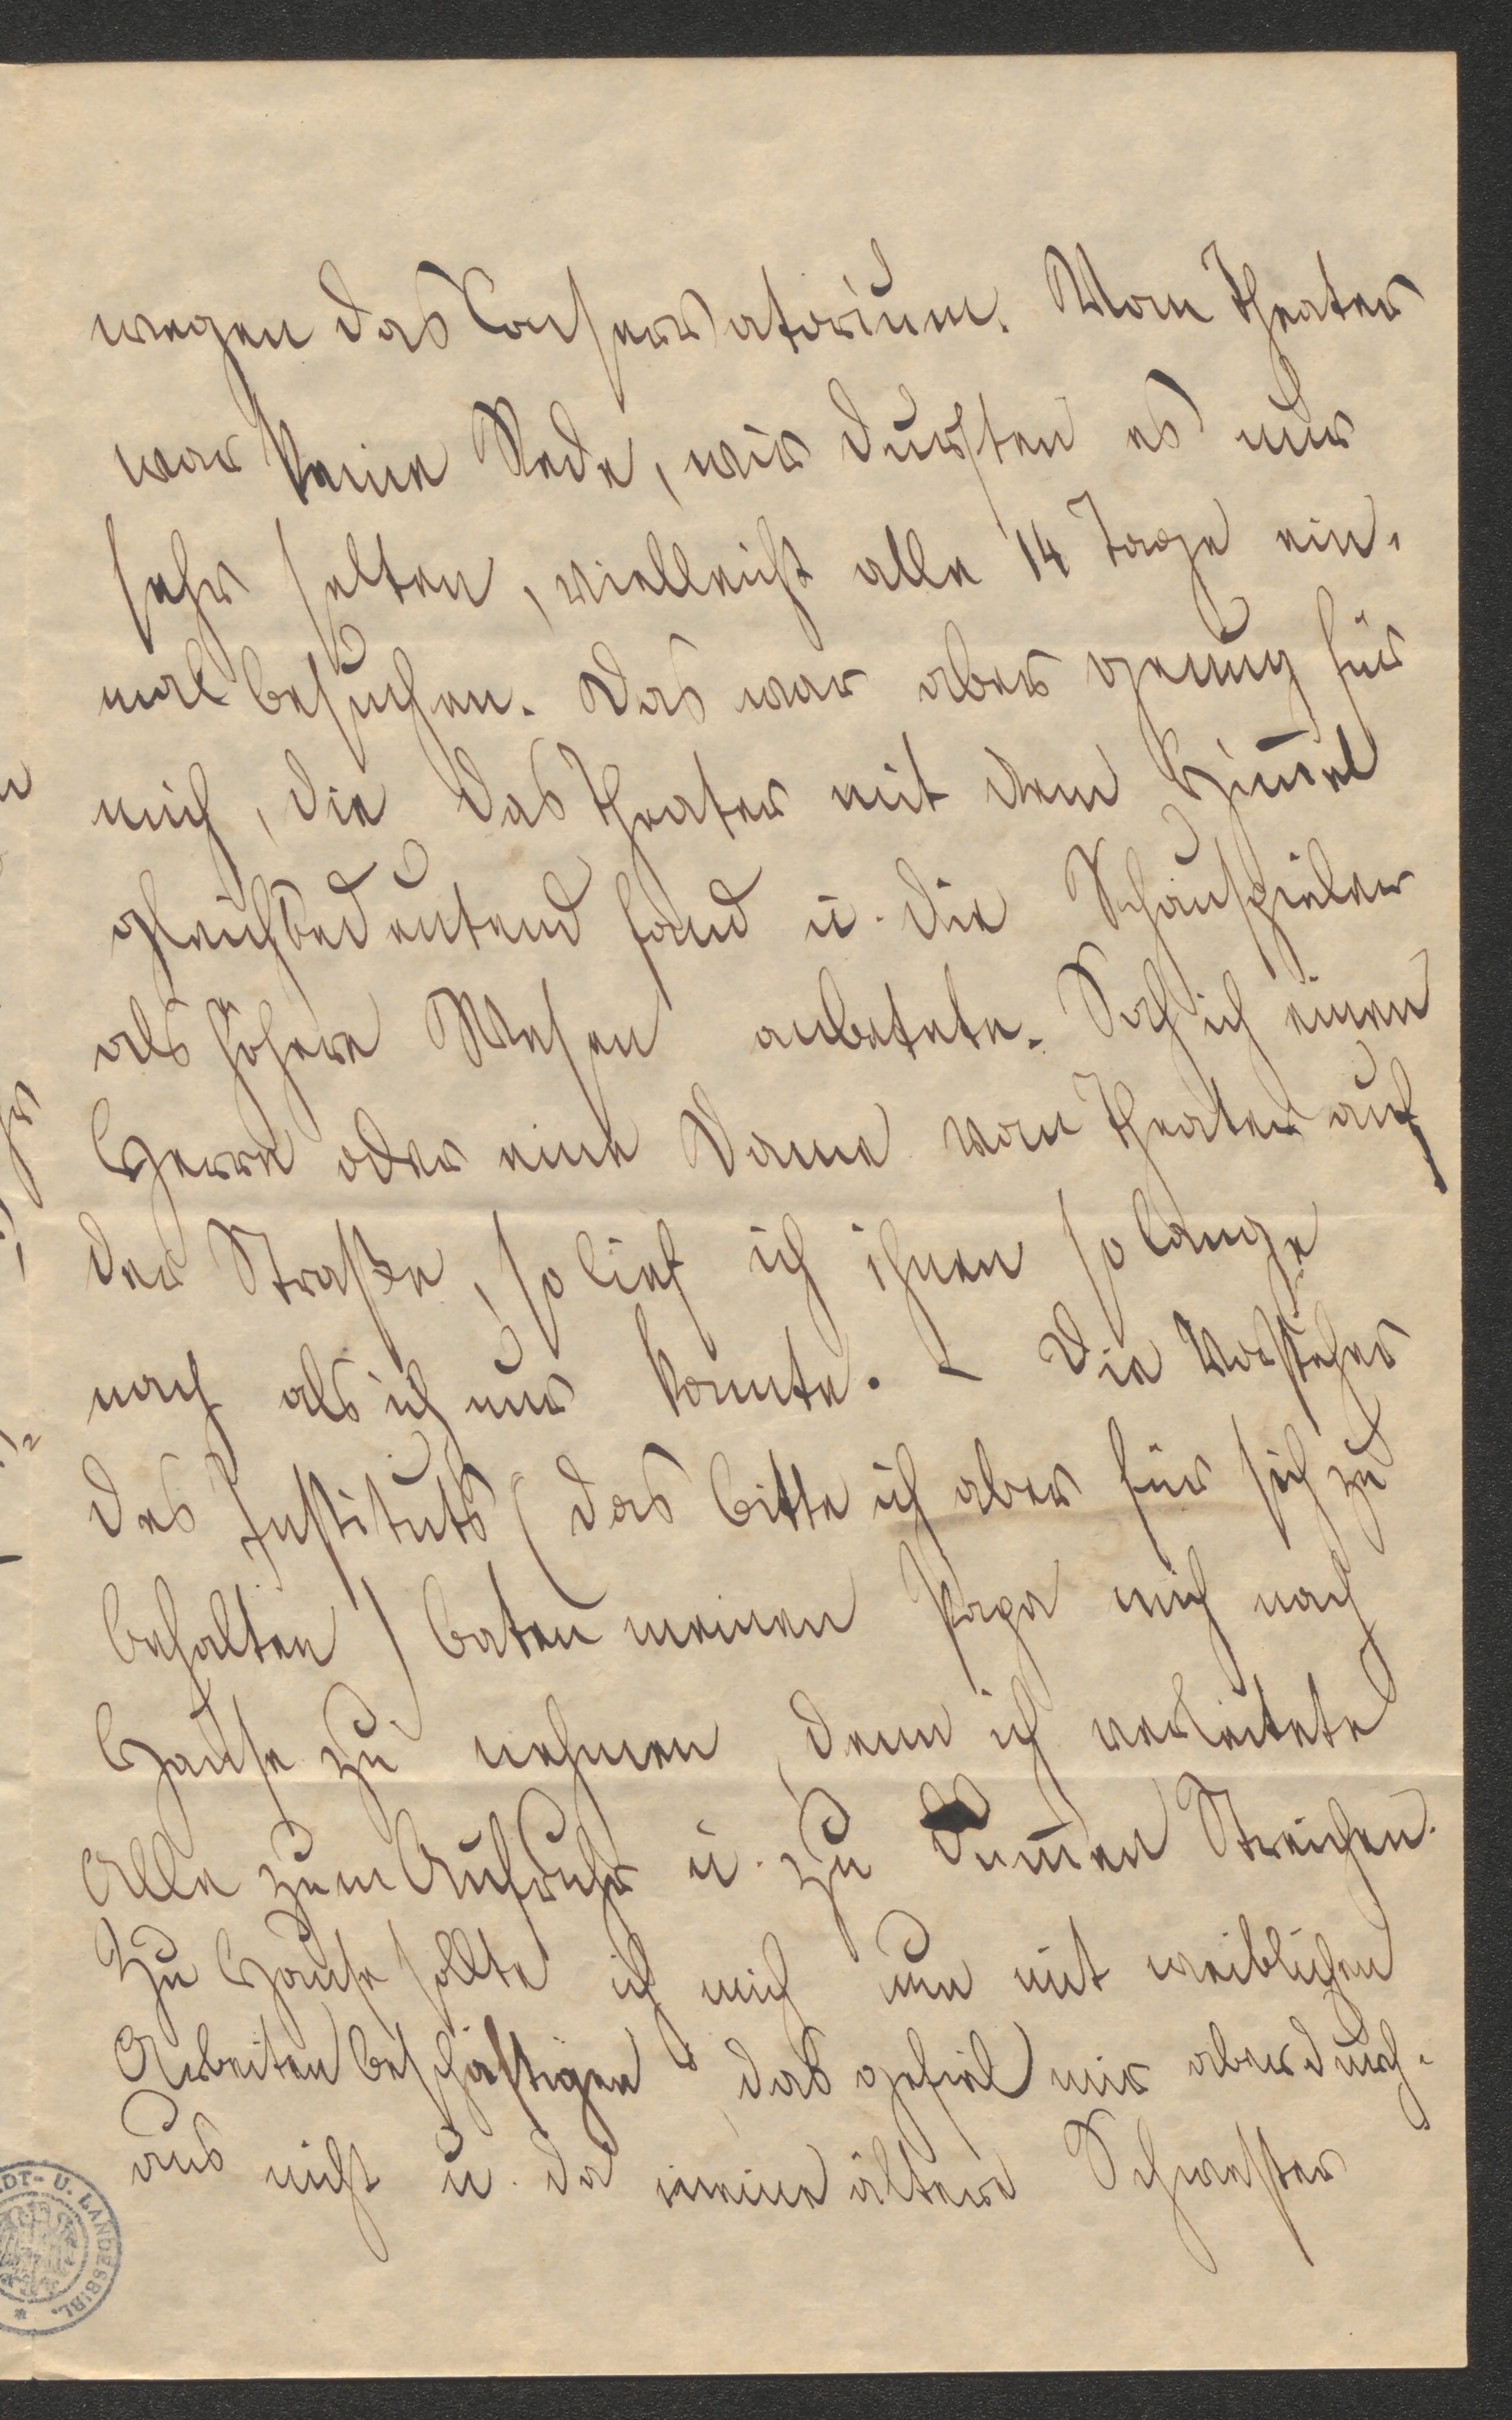 wegen das Conservatorium. Vom Theater
war keine Rede, wir durften es nur
sehr selten, vielleicht alle 14 Tage ein-
mal besuchen. Das war aber genug für
mich, die das Theater mit dem Him̄el
gleichbedeutend fand u. die Schauspieler
als höhere Wesen anbetete. Sah ich einen
Herrn oder eine Dame vom Theater auf
der Straße, so lief ich ihnen so lange
nach als ich nur konnte. – Die Vorsteher
des Instituts (das bitte ich aber für sich zu
behalten) baten meinen Papa mich nach
Hause zu nehmen, denn ich verleitete
Alle zum Aufruhr u. zu dum̄en Streichen.
Zu Hause sollte ich mich nun mit weiblichen
Arbeiten beschäftigen, das gefiel mir aber durch-
aus nicht u. da meine ältere Schwester
DT- U. LANDESBIBL. *